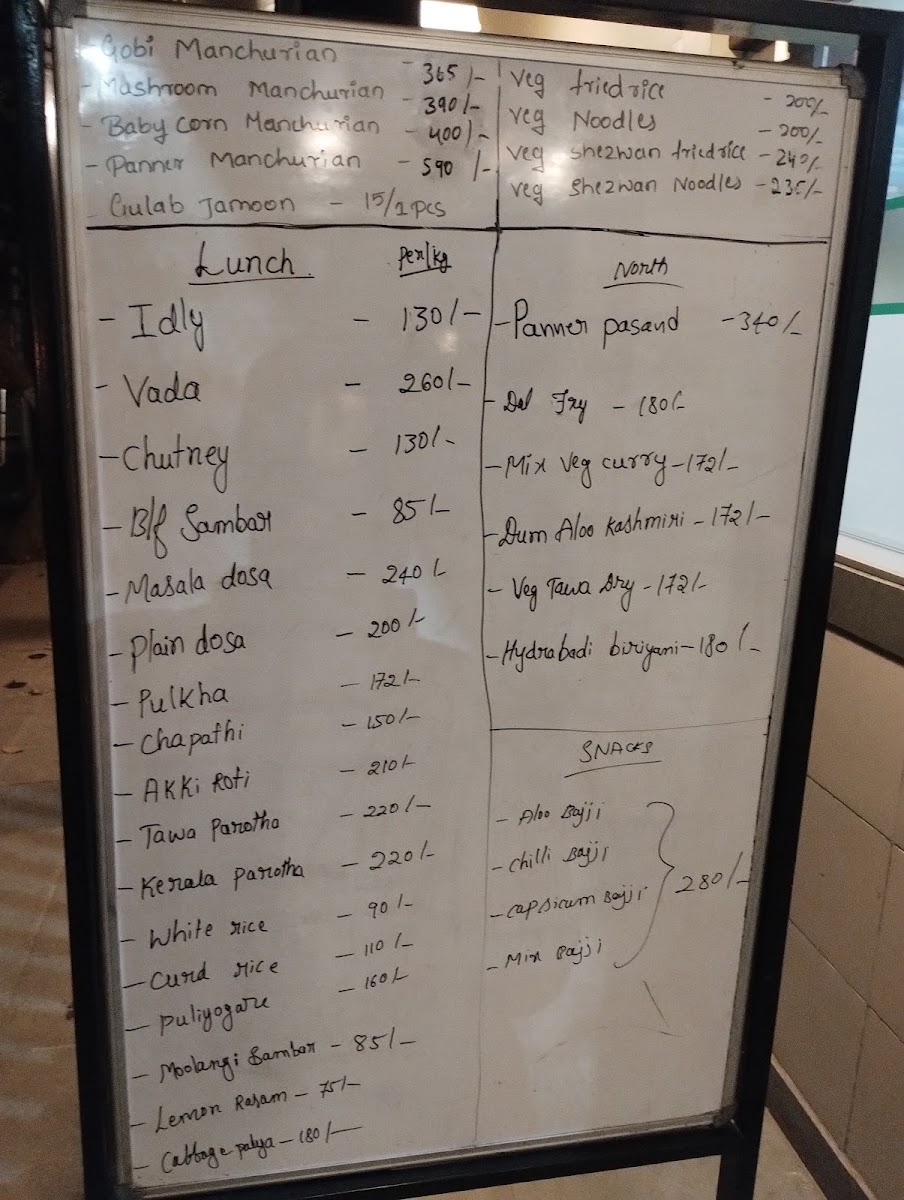 - Gobi Manchurian - 365/-
- Mashroom Manchurian - 390/-
- Baby corn Manchurian - 400/-
- Panner Manchurian - 590/-
- Gulab Jamoon - 15/1pcs
Veg friedrice - 200/-
Veg Noodles - 200/-
Veg Shezwan friedrice - 240/-
Veg Shezwan Noodles - 235/-
Lunch Per/kg
- Idly - 130/-
- Vada - 260/-
- Chutney - 130/-
- B/f Sambar - 85/-
- Masala dosa - 240/-
- Plain dosa - 200/-
- Pulkha - 172/-
- Chapathi - 150/-
- AKKi Roti - 210/-
- Tawa Parotha - 220/-
- Kerala parotha - 220/-
- White rice - 90/-
- Curd rice - 110/-
- Puliyogare - 160/-
- Moolangi Sambar - 85/-
- Lemon Rasam - 75/-
- Cabbage palya - 180/-
North
- Panner pasand - 340/-
- Dal Fry - 180/-
- Mix Veg curry - 172/-
- Dum Aloo Kashmiri - 172/-
- Veg Tawa Dry - 172/-
- Hydrabadi biriyani - 180/-
SNACKS
- Aloo Bajji
- Chilli Bajji
- Capsicum Bajji
- Mix Bajji
280/-